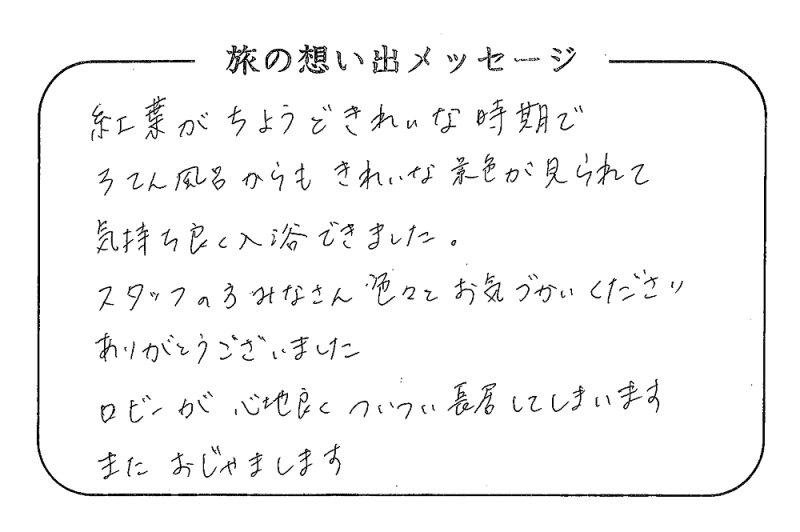 旅の想い出メッセージ
紅葉がちょうどきれいな時期で
ろてん風呂からも きれいな景色が見られて
気持ち良く入浴できました。
スタッフの方みなさん 色々と お気づかいくださり
ありがとうございました
ロビーが 心地良く ついつい長居してしまいます
また おじゃまします